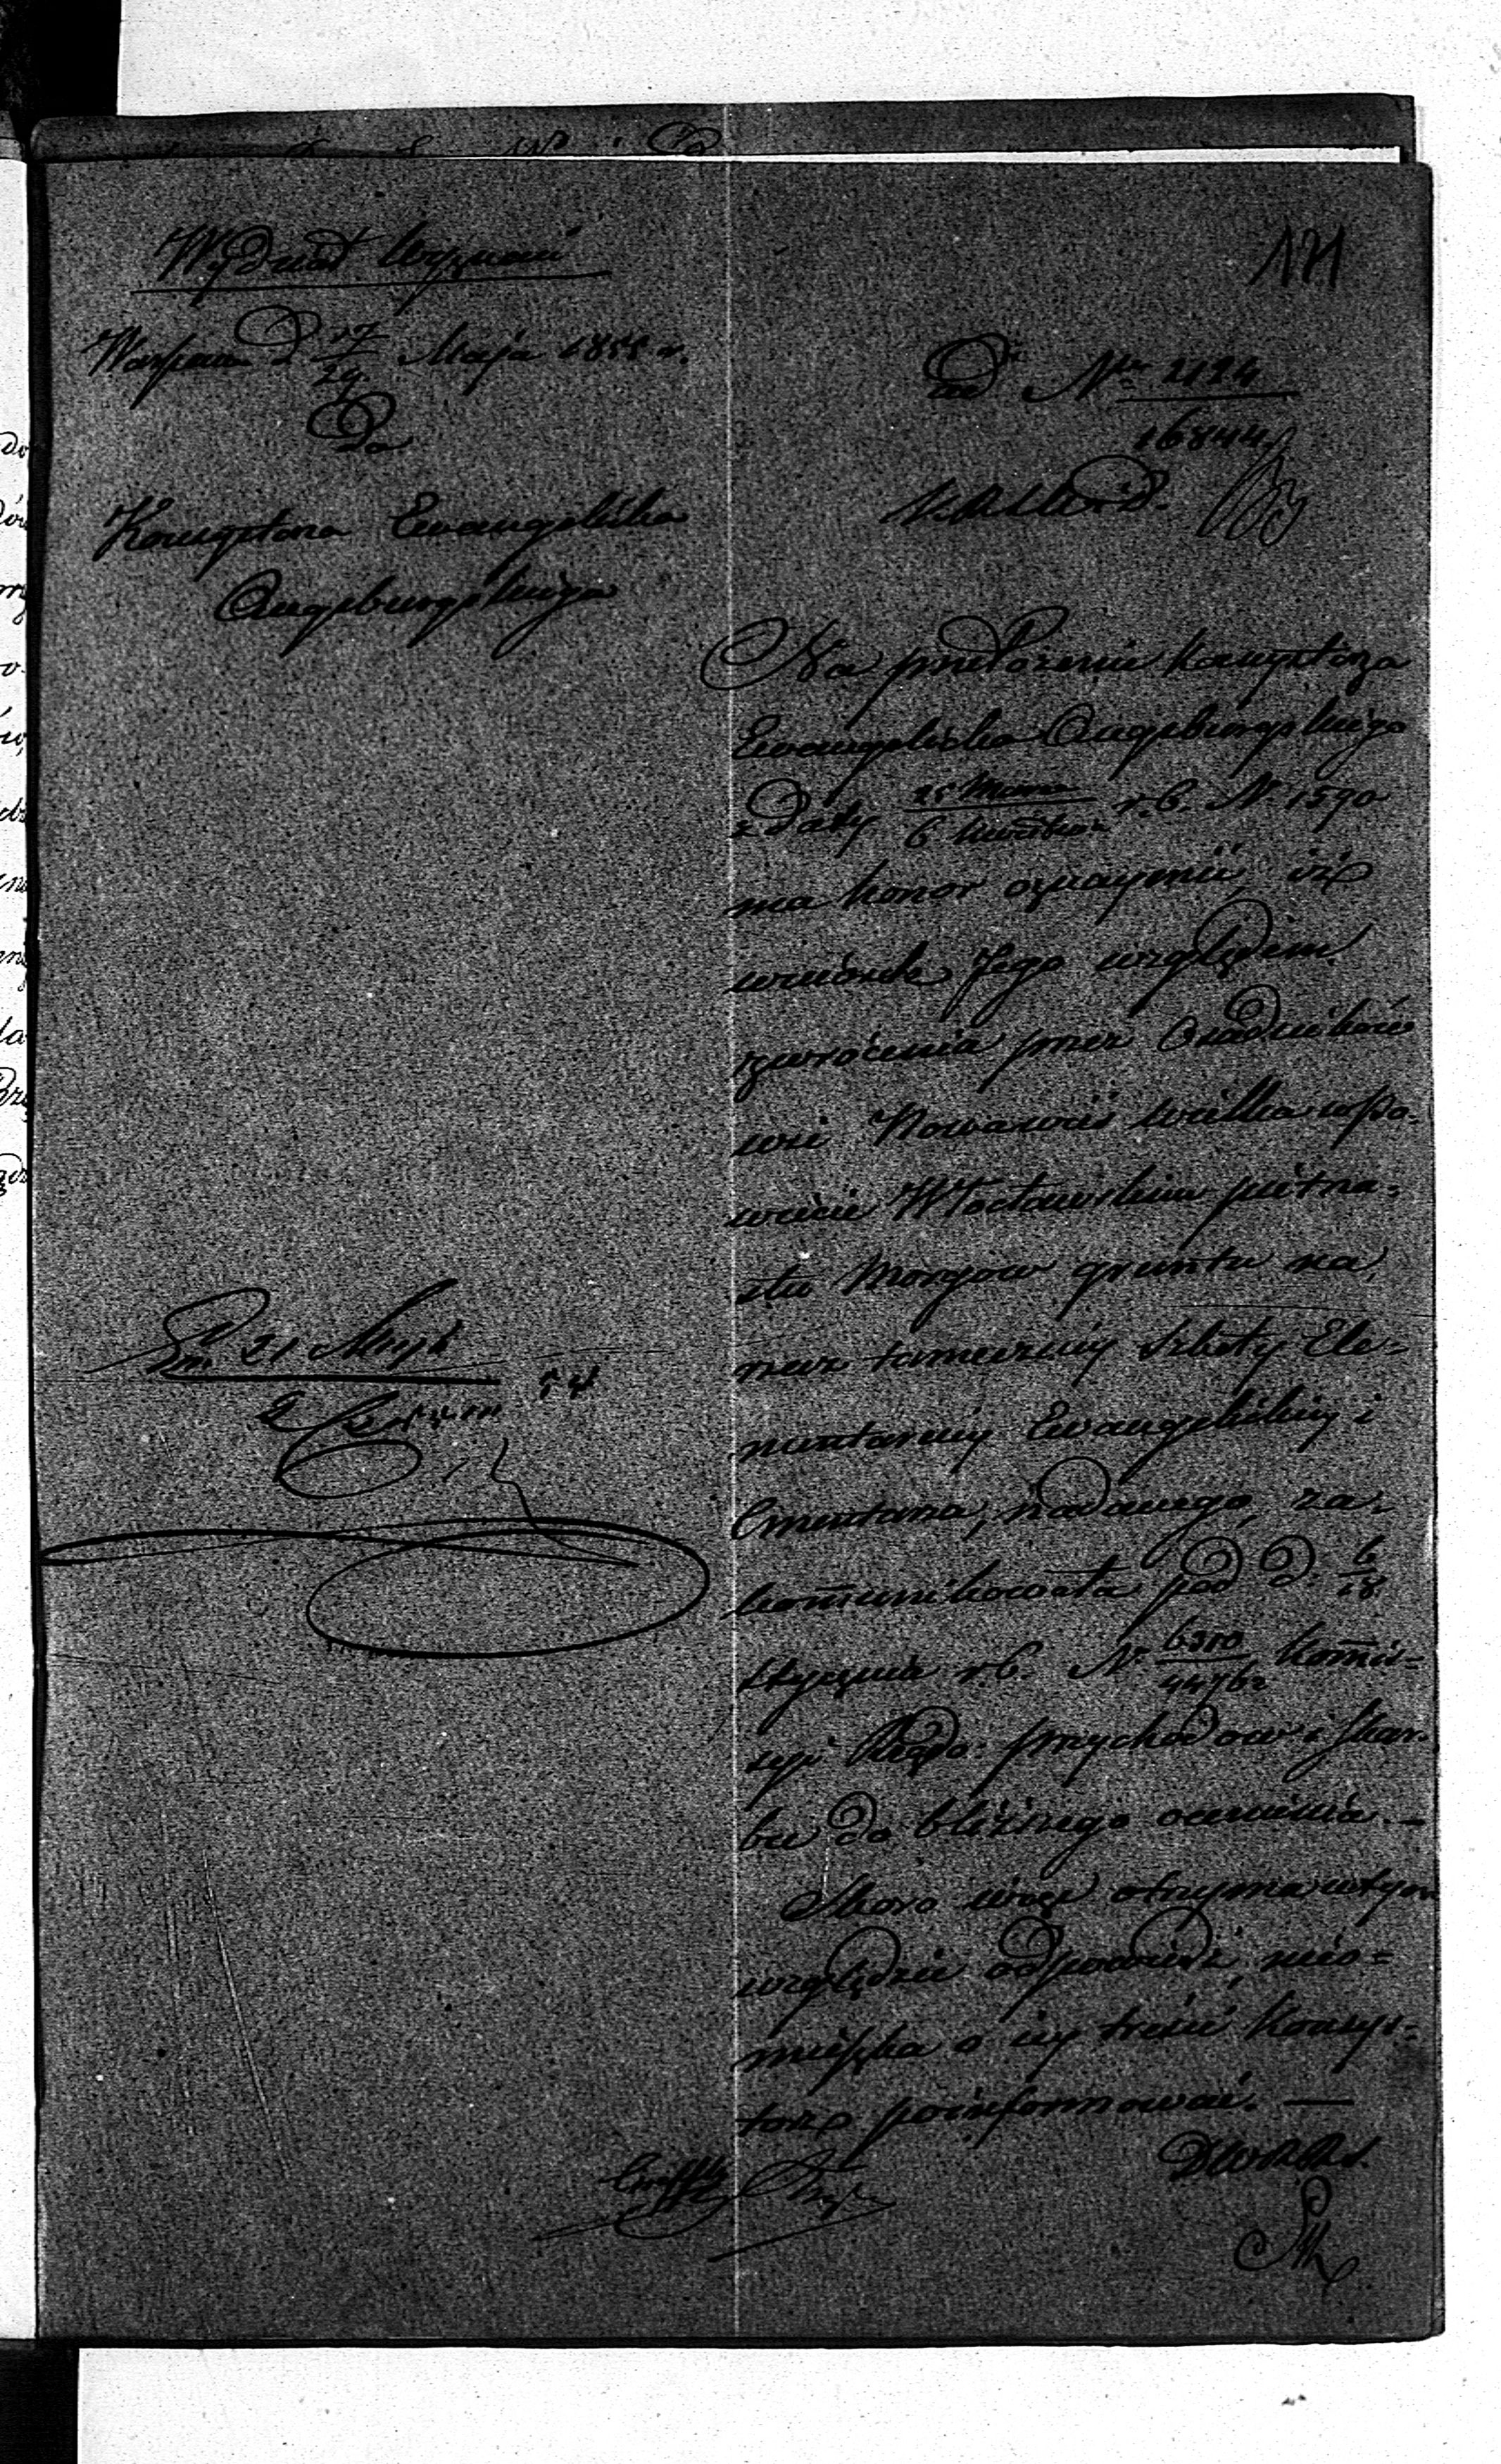 Wydział Wyznań
Warszawa d 17/29 Maja 185 r.
Do
Konsystorza Ewangelicko
Augsburgskiego
171
ad Nr 2124/16844
Na przedłożenie Konsystorza
Ewangelicko Augsburgskiego
z daty 25 Marca/6 Kwietnia r. b. Nr 1590
ma honor oznaymić, iż
wniosek Jego względem
zwrócenia przez Osadników
wsi Nowawieś wielka w Po-
wiecie Włocławskim piętna-
stu Morgow gruntu na
rzecz tameczney Szkoły Ele-
mentarney Ewangelickiey i
Cmentarza, nadanego, za-
komunikowała pod d. 6/18
Stycznia r. b. Nr 6310/44762 Kommis-
syi Rządo: Przychodow i Skar-
bu do bliższego ocenienia. —
Skoro więc otrzyma w tym
względzie odpowiedź, nieo-
mieszka o iey treści Konsys-
torz poinformować. —
21 Maja
2 Czerwca 54